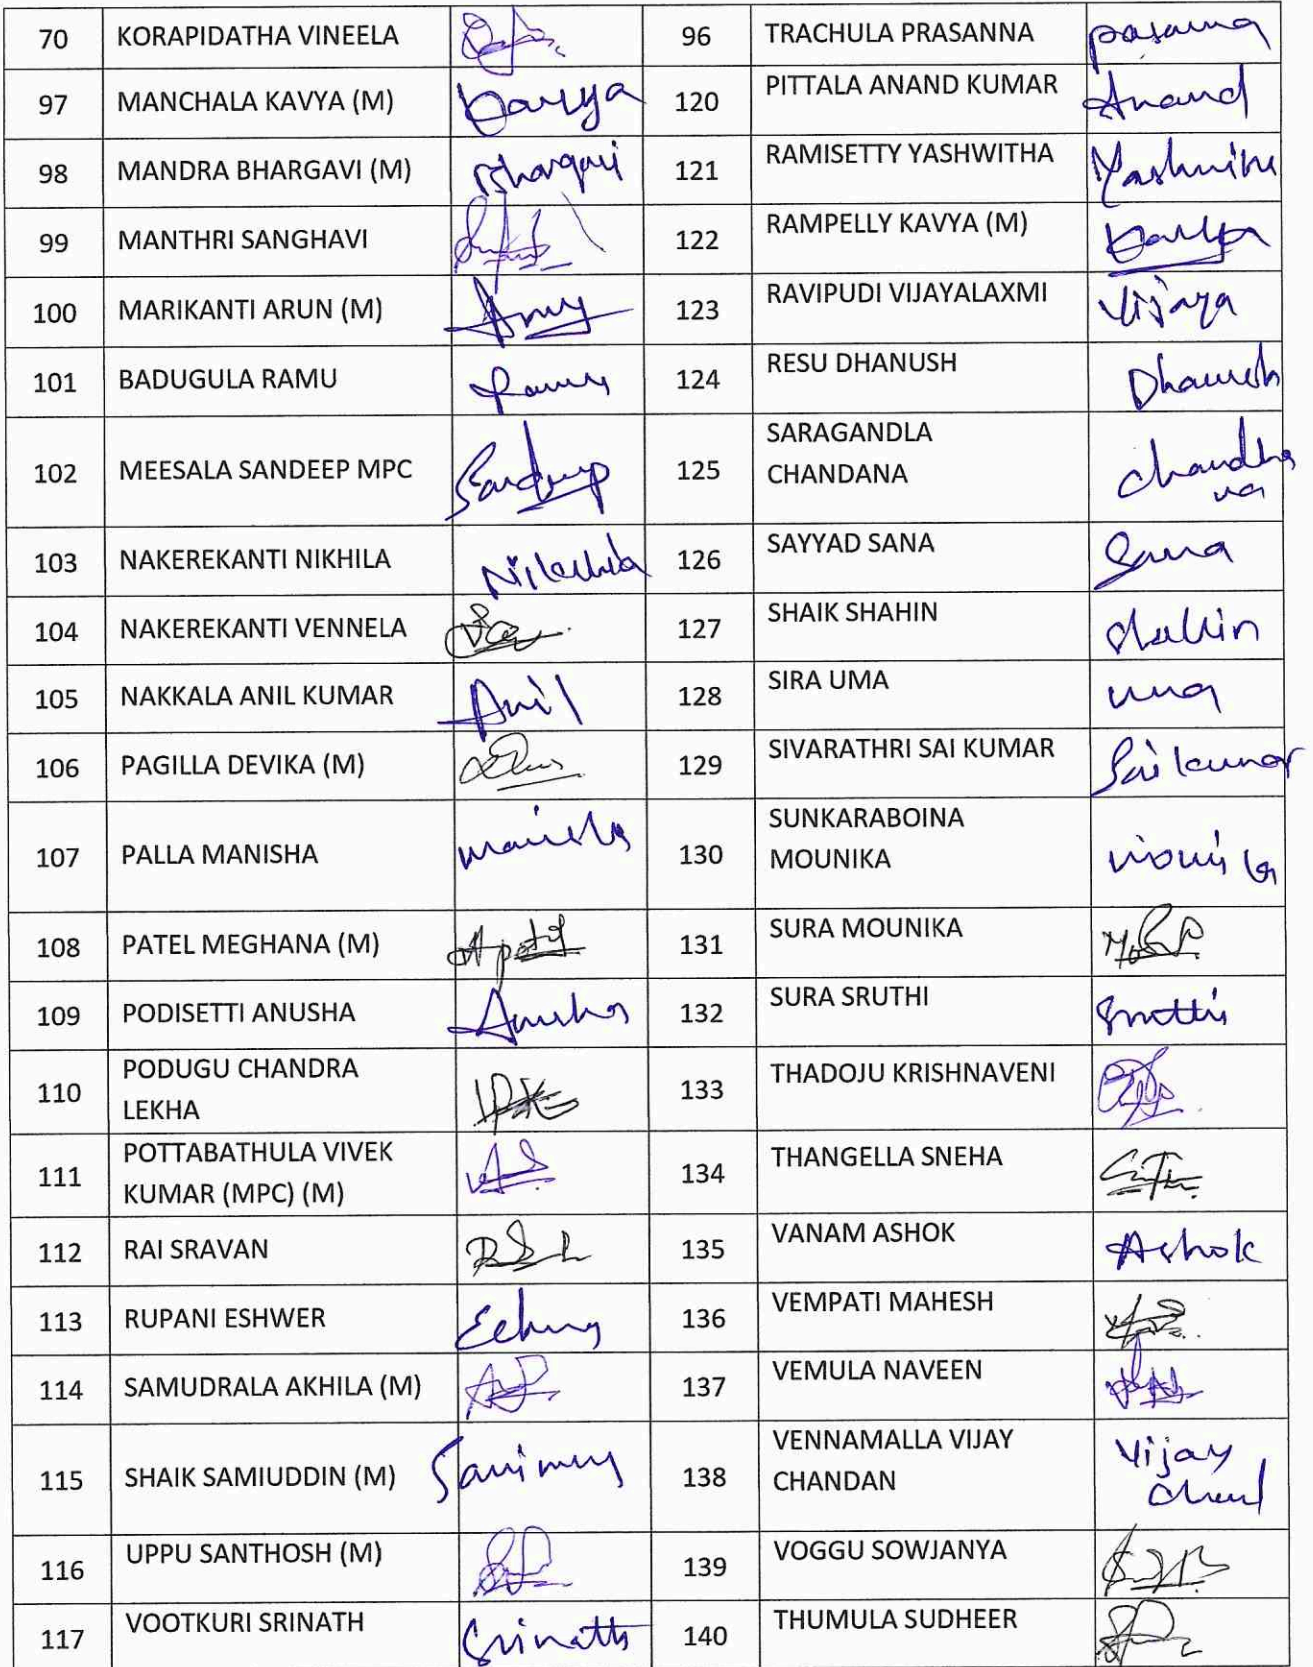 70 KORAPIDATHA VINEELA 96 TRACHULA PRASANNA pasanna
97 MANCHALA KAVYA (M) kavya 120 PITTALA ANAND KUMAR Anand
98 MANDRA BHARGAVI (M) Bhargavi 121 RAMISETTY YASHWITHA
99 MANTHRI SANGHAVI 122 RAMPELLY KAVYA (M) kavya
100 MARIKANTI ARUN (M) 123 RAVIPUDI VIJAYALAXMI Vijaya
101 BADUGULA RAMU Ramu 124 RESU DHANUSH Dhanush
102 MEESALA SANDEEP MPC Sandeep 125 SARAGANDLA
CHANDANA Chandha
na
103 NAKEREKANTI NIKHILA Nikhila 126 SAYYAD SANA Sana
104 NAKEREKANTI VENNELA 127 SHAIK SHAHIN Shahin
105 NAKKALA ANIL KUMAR Anil 128 SIRA UMA uma
106 PAGILLA DEVIKA (M) 129 SIVARATHRI SAI KUMAR Sai kumar
107 PALLA MANISHA manisha 130 SUNKARABOINA
MOUNIKA mounika
108 PATEL MEGHANA (M) 131 SURA MOUNIKA
109 PODISETTI ANUSHA Anusha 132 SURA SRUTHI Sruthi
110 PODUGU CHANDRA
LEKHA 133 THADOJU KRISHNAVENI
111 POTTABATHULA VIVEK
KUMAR (MPC) (M) 134 THANGELLA SNEHA
112 RAI SRAVAN 135 VANAM ASHOK Ashok
113 RUPANI ESHWER 136 VEMPATI MAHESH
114 SAMUDRALA AKHILA (M) 137 VEMULA NAVEEN
115 SHAIK SAMIUDDIN (M) 138 VENNAMALLA VIJAY
CHANDAN Vijay
116 UPPU SANTHOSH (M) 139 VOGGU SOWJANYA
117 VOOTKURI SRINATH Srinath 140 THUMULA SUDHEER